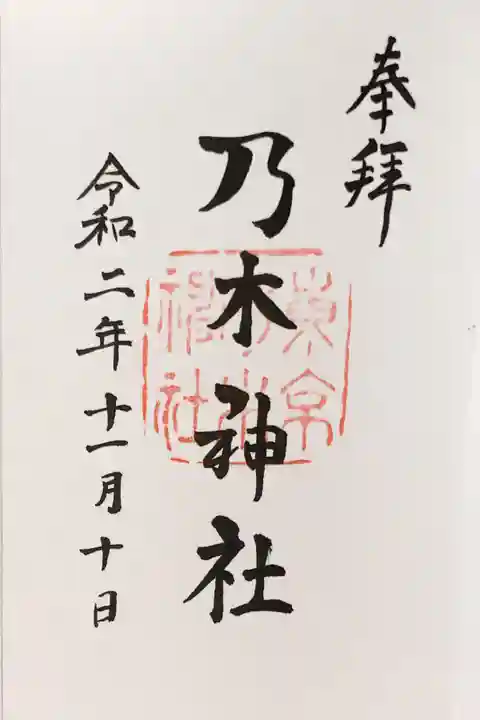 奉拝
乃木神社
東京乃木神社
令和二年十一月十日